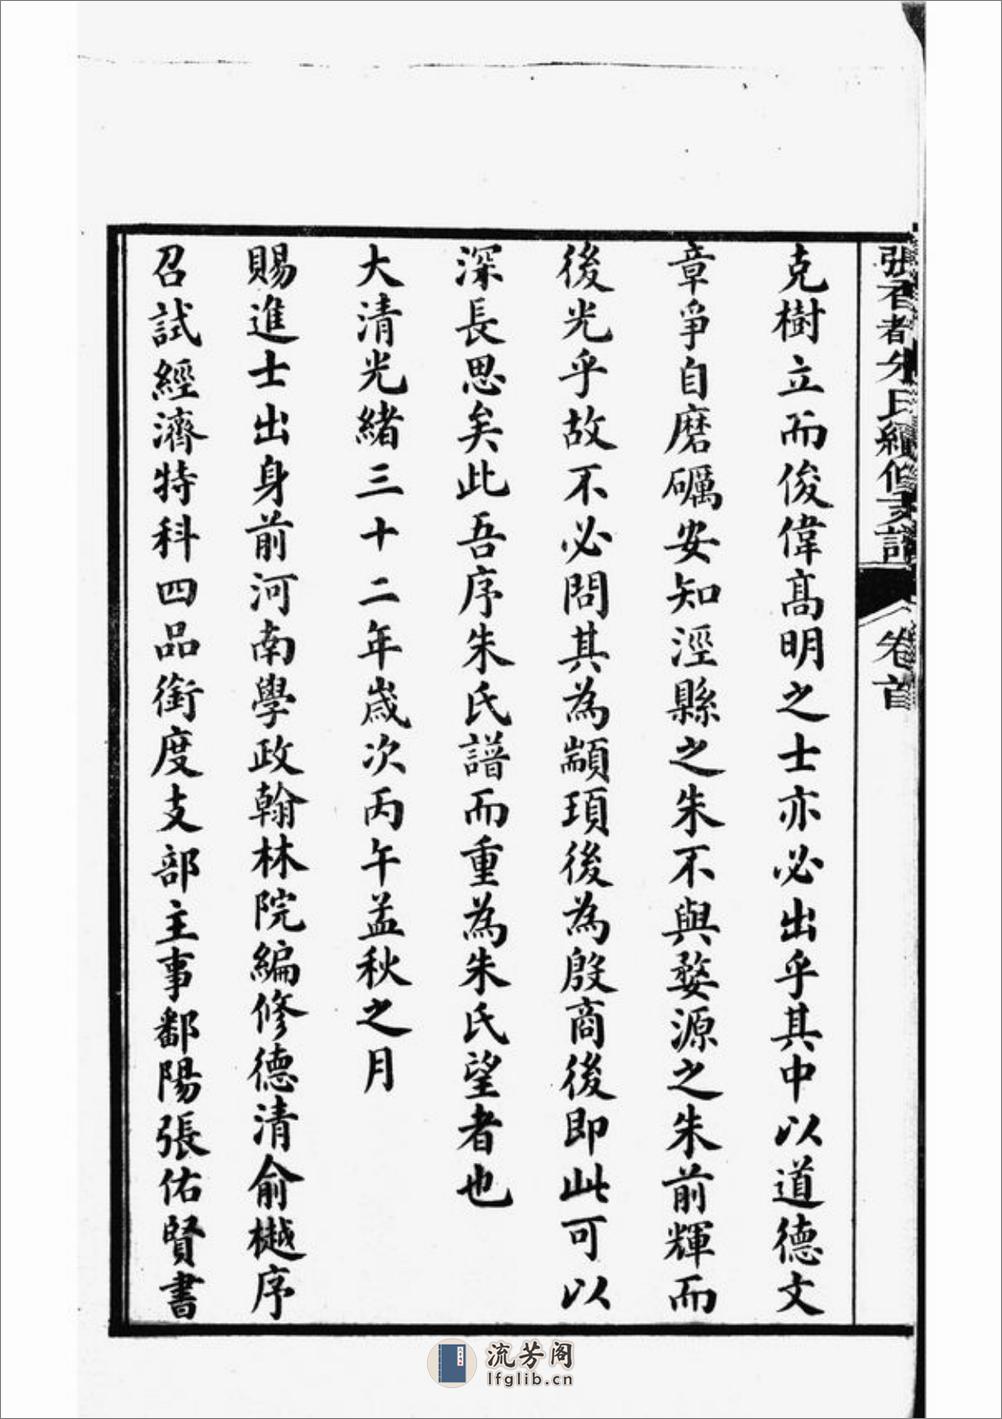 張香都朱氏續修支譜 卷首
克樹立而俊偉高明之士亦必出乎其中以道德文
章爭自磨礪安知涇縣之朱不與婺源之朱前輝而
後光乎故不必問其為顓頊後為殷商後即此可以
深長思矣此吾序朱氏譜而重為朱氏望者也
大清光緒三十二年歲次丙午孟秋之月
賜進士出身前河南學政翰林院編修德清俞樾序
召試經濟特科四品銜度支部主事鄱陽張佑賢書
流芳阁
lfglib.cn